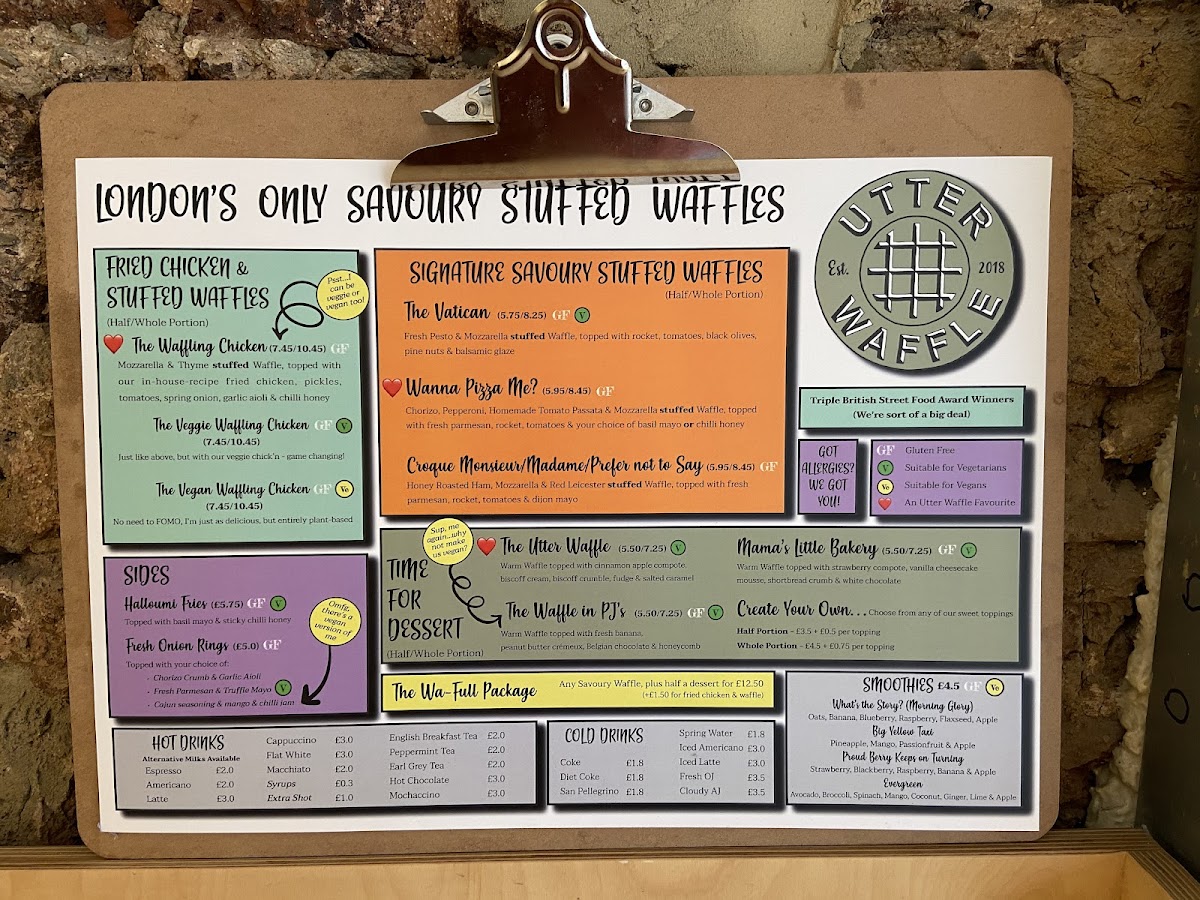 LONDON'S ONLY SAVOURY STUFFED WAFFLES
UTTER
WAFFLE
Est.
2018
FRIED CHICKEN &
STUFFED WAFFLES
(Half/Whole Portion)
Psst...I
can be
veggie or
vegan too!
The Waffling Chicken (7.45/10.45) GF
Mozzarella & Thyme stuffed Waffle, topped with
our in-house-recipe fried chicken, pickles,
tomatoes, spring onion, garlic aioli & chilli honey
The Veggie Waffling Chicken GF V
(7.45/10.45)
Just like above, but with our veggie chick'n - game changing!
The Vegan Waffling Chicken GF Ve
(7.45/10.45)
No need to FOMO, I'm just as delicious, but entirely plant-based
SIGNATURE SAVOURY STUFFED WAFFLES
(Half/Whole Portion)
The Vatican (5.75/8.25) GF V
Fresh Pesto & Mozzarella stuffed Waffle, topped with rocket, tomatoes, black olives,
pine nuts & balsamic glaze
Wanna Pizza Me? (5.95/8.45) GF
Chorizo, Pepperoni, Homemade Tomato Passata & Mozzarella stuffed Waffle, topped
with fresh parmesan, rocket, tomatoes & your choice of basil mayo or chilli honey
Croque Monsieur/Madame/Prefer not to Say (5.95/8.45) GF
Honey Roasted Ham, Mozzarella & Red Leicester stuffed Waffle, topped with fresh
parmesan, rocket, tomatoes & dijon mayo
Triple British Street Food Award Winners
(We're sort of a big deal)
GOT
ALLERGIES?
WE GOT
YOU!
GF Gluten Free
V Suitable for Vegetarians
Ve Suitable for Vegans
An Utter Waffle Favourite
SIDES
Halloumi Fries (£5.75) GF V
Topped with basil mayo & sticky chilli honey
Fresh Onion Rings (£5.0) GF
Topped with your choice of:
- Chorizo Crumb & Garlic Aioli
- Fresh Parmesan & Truffle Mayo V
- Cajun seasoning & mango & chilli jam
Omfg,
there's a
vegan
version of
me
Sup, me
again...why
not make
us vegan?
TIME
FOR
DESSERT
(Half/Whole Portion)
The Utter Waffle (5.50/7.25) V
Warm Waffle topped with cinnamon apple compote,
biscoff cream, biscoff crumble, fudge & salted caramel
The Waffle in PJ's (5.50/7.25) GF V
Warm Waffle topped with fresh banana,
peanut butter crémeux, Belgian chocolate & honeycomb
Mama's Little Bakery (5.50/7.25) GF V
Warm Waffle topped with strawberry compote, vanilla cheesecake
mousse, shortbread crumb & white chocolate
Create Your Own... Choose from any of our sweet toppings
Half Portion - £3.5 + £0.5 per topping
Whole Portion - £4.5 + £0.75 per topping
The Wa-Full Package
Any Savoury Waffle, plus half a dessert for £12.50
(+£1.50 for fried chicken & waffle)
HOT DRINKS
Alternative Milks Available
Espresso £2.0
Americano £2.0
Latte £3.0
Cappuccino £3.0
Flat White £3.0
Macchiato £2.0
Syrups £0.3
Extra Shot £1.0
English Breakfast Tea £2.0
Peppermint Tea £2.0
Earl Grey Tea £2.0
Hot Chocolate £3.0
Mochaccino £3.0
COLD DRINKS
Coke £1.8
Diet Coke £1.8
San Pellegrino £1.8
Spring Water £1.8
Iced Americano £3.0
Iced Latte £3.0
Fresh OJ £3.5
Cloudy AJ £3.5
SMOOTHIES £4.5 GF Ve
What's the Story? (Morning Glory)
Oats, Banana, Blueberry, Raspberry, Flaxseed, Apple
Big Yellow Taxi
Pineapple, Mango, Passionfruit & Apple
Proud Berry Keeps on Turning
Strawberry, Blackberry, Raspberry, Banana & Apple
Evergreen
Avocado, Broccoli, Spinach, Mango, Coconut, Ginger, Lime & Apple